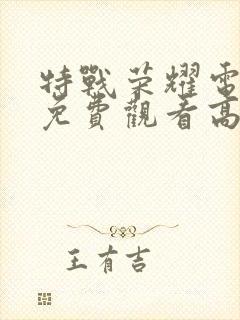 特戰荣耀電
免費觀看高
王有吉